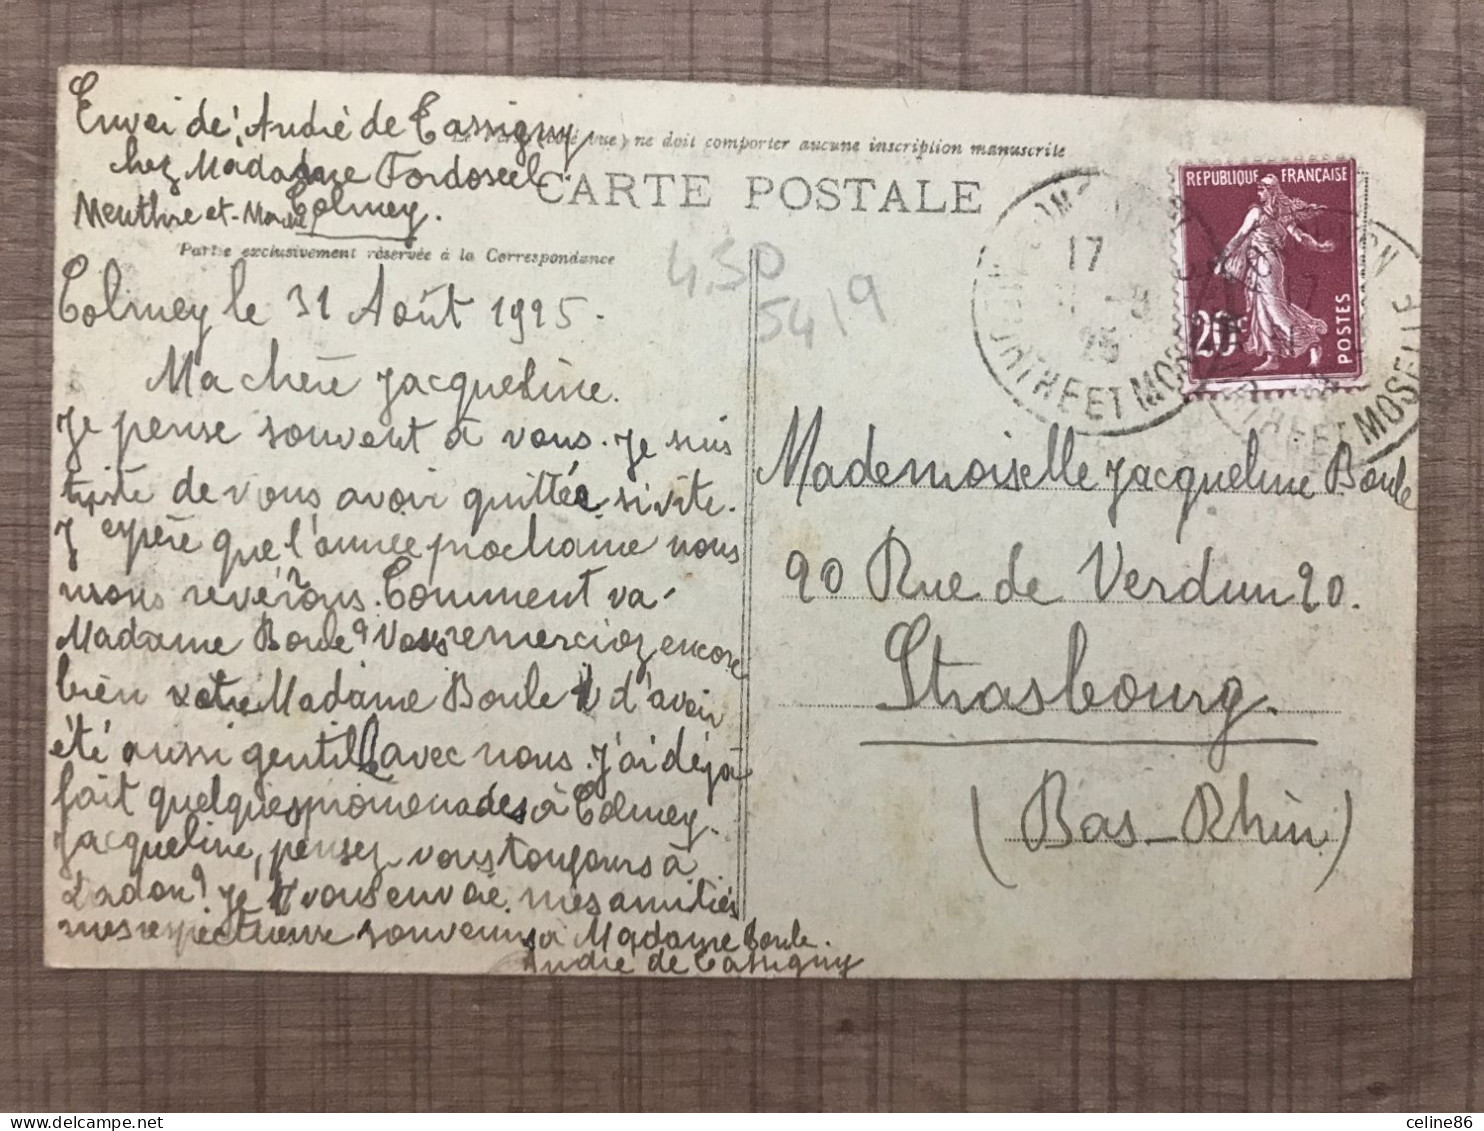 Envoi de André de Tassigny
Le Verso (côté vue) ne doit comporter aucune inscription manuscrite
chez Madame Tordoseel
CARTE POSTALE
Meurthe et-Mos Colmey.
Partie exclusivement réservée à la Correspondance
Colmey le 31 Août 1925.
Ma chère Jacqueline.
Je pense souvent à vous. Je suis
triste de vous avoir quittée si vite.
J'espère que l'année prochaine nous
nous reverrons. Comment va-
Madame Boule? Vous remerciez encore
bien votre Madame Boule d'avoir
été aussi gentille avec nous. J'ai déjà
fait quelques promenades à Colmey.
Jacqueline, pensez vous toujours à
Ladon? Je vous envoie mes amitiés
mes respectueux souvenirs à Madame Boule.
André de Tassigny
430
5419
17
25
MEURTHE ET MOSELLE
REPUBLIQUE FRANÇAISE
20c
POSTES
17
MEURTHE ET MOSELLE
Mademoiselle Jacqueline Boule
90 Rue de Verdun 90.
Strasbourg.
(Bas-Rhin)
celine86